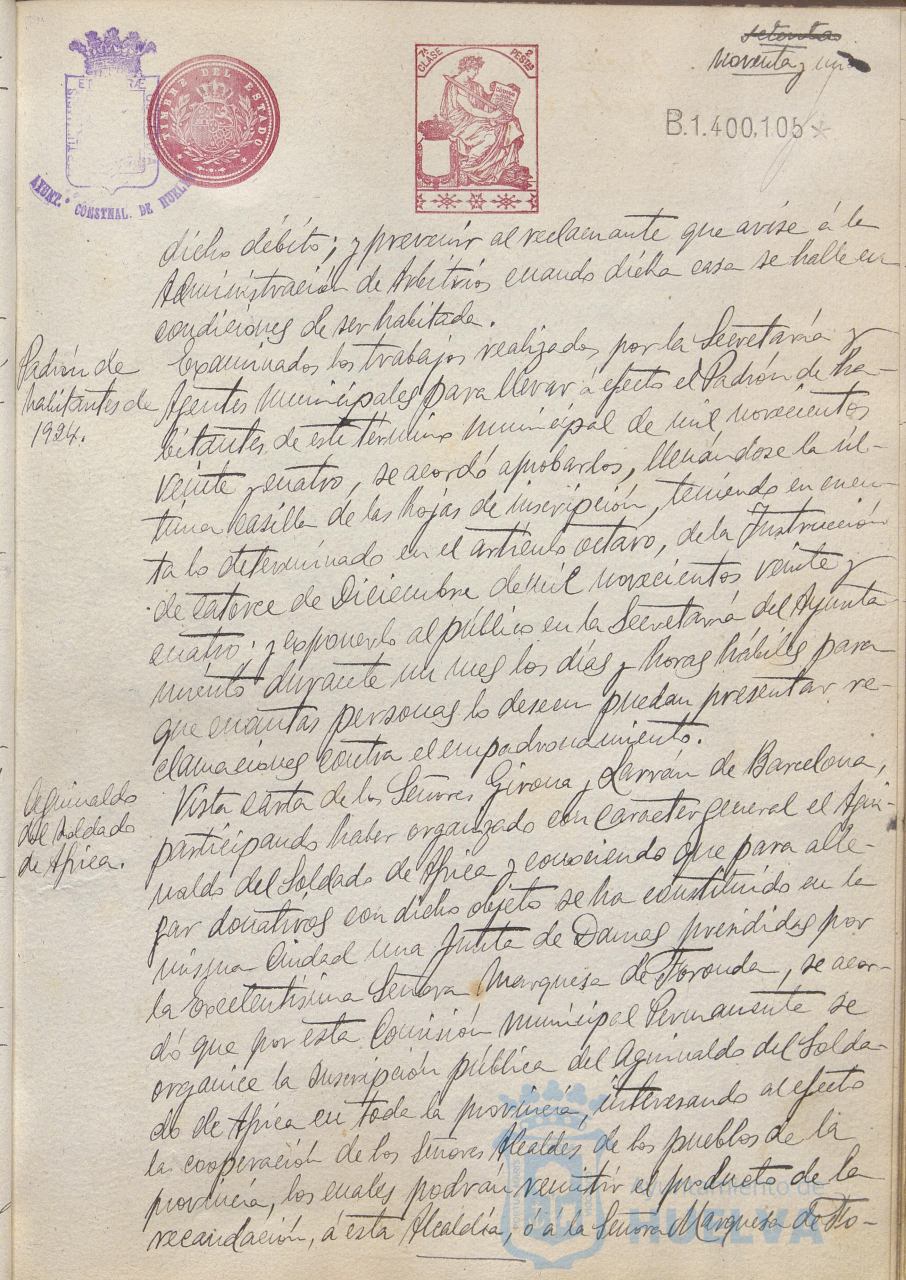 setenta
noventa y un
B.1.400.105*
7ª CLASE
2 PESETAS
TIMBRE DEL ESTADO
AYUNT.º CONSTNAL. DE HUELVA
dicho débito; y prevenir al reclamante que avise á la
Administración de Arbitrios cuando dicha casa se halle en
condiciones de ser habitada.
Padrón de
habitantes de
1924.
Examinados los trabajos realizados por la Secretaría y
Agentes municipales para llevar á efecto el Padrón de ha-
bitantes de este término municipal de mil novecientos
veinte y cuatro, se acordó aprobarlos, llenándose la úl-
tima casilla de las hojas de inscripción, teniendo en cuen-
ta lo determinado en el artículo octavo, de la Instrucción
de catorce de Diciembre de mil novecientos veinte y
cuatro; y exponerlo al público en la Secretaría del Ayunta
miento durante un mes los días y horas hábiles para
que cuantas personas lo deseen puedan presentar re-
clamaciones contra el empadronamiento.
Aguinaldo
del Soldado
de Africa.
Vista carta de los Señores Girona y Larrán de Barcelona,
participando haber organizado con caracter general el Agui-
naldo del Soldado de Africa y conociendo que para alle-
gar donativos con dicho objeto se ha constituido en la
misma Ciudad una Junta de Damas presididas por
la Excelentísima Señora Marquesa de Foronda, se acor-
dó que por esta Comisión Municipal Permanente se
organice la suscripción pública del Aguinaldo del Solda-
do de Africa en toda la provincia, interesando al efecto
la cooperación de los Señores Alcaldes de los pueblos de la
provincia, los cuales podrán remitir el producto de la
recaudación, á esta Alcaldía, ó á la Señora Marquesa de Fo-
Ayuntamiento de
HUELVA